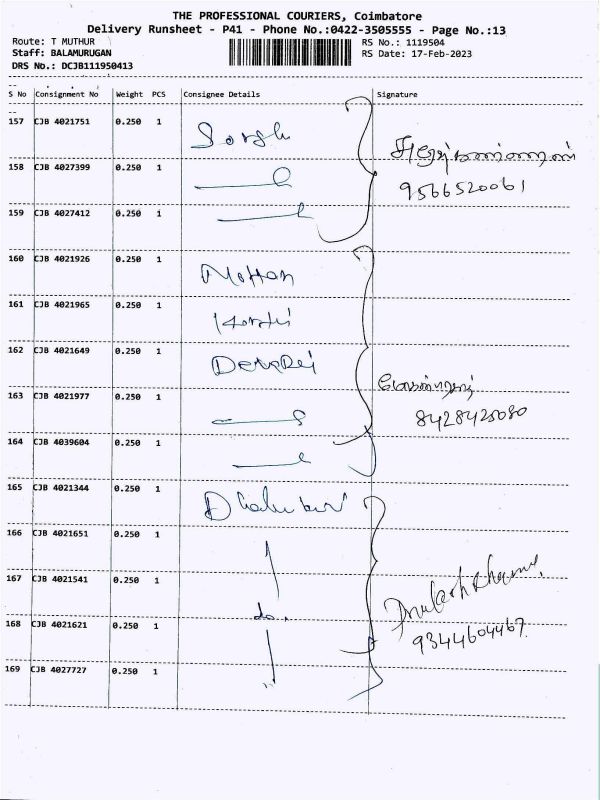 THE PROFESSIONAL COURIERS, Coimbatore
Delivery Runsheet - P41 - Phone No.:0422-3505555 - Page No.:13
Route: T MUTHUR RS No.: 1119504
Staff: BALAMURUGAN RS Date: 17-Feb-2023
DRS No.: DCJB111950413
S No Consignment No Weight PCS Consignee Details Signature
157 CJB 4021751 0.250 1
158 CJB 4027399 0.250 1
9566520061
159 CJB 4027412 0.250 1
160 CJB 4021926 0.250 1 Mohan
161 CJB 4021965 0.250 1
162 CJB 4021649 0.250 1
163 CJB 4021977 0.250 1
8428428080
164 CJB 4039604 0.250 1
165 CJB 4021344 0.250 1
166 CJB 4021651 0.250 1
167 CJB 4021541 0.250 1
168 CJB 4021621 0.250 1 do.
9344604467
169 CJB 4027727 0.250 1